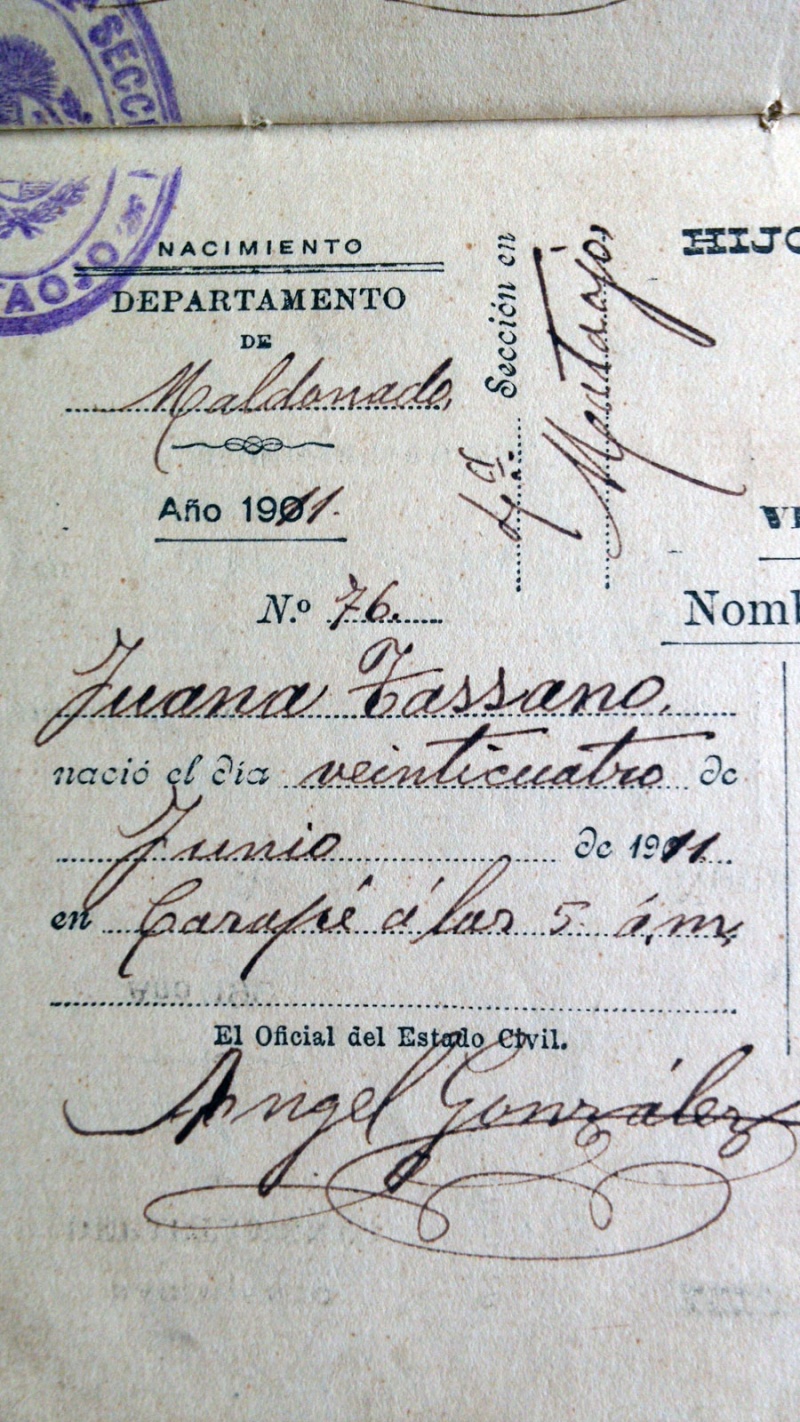 SECCI
TAOJO
NACIMIENTO
DEPARTAMENTO
DE
Maldonado,
Año 1911.
4ª Sección en
Mataojo,
HIJO
N.º 76.
Nomb
Juana Tassano.
nació el día veinticuatro de
Junio de 1911.
en Carapé á las 5 á.m,
El Oficial del Estado Civil.
Angel González